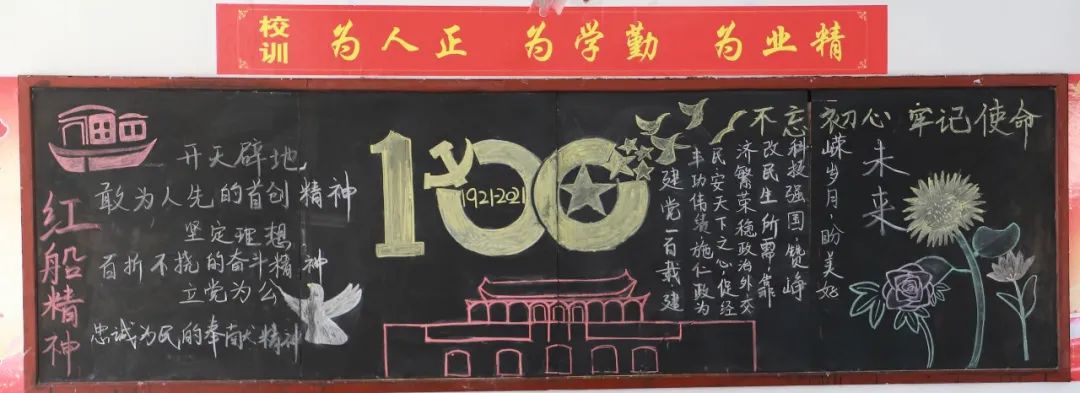 校训
为人正 为学勤 为业精
红船精神
开天辟地,
敢为人先的首创精神
坚定理想
百折不挠的奋斗精神
立党为公
忠诚为民的奉献精神
100
1921-2021
不忘初心 牢记使命
建党一百载建
丰功伟绩施仁政为
民安天下之心,促经
济繁荣稳政治外交
改民生所需靠
科技强国峥
嵘岁月,盼美好
未来